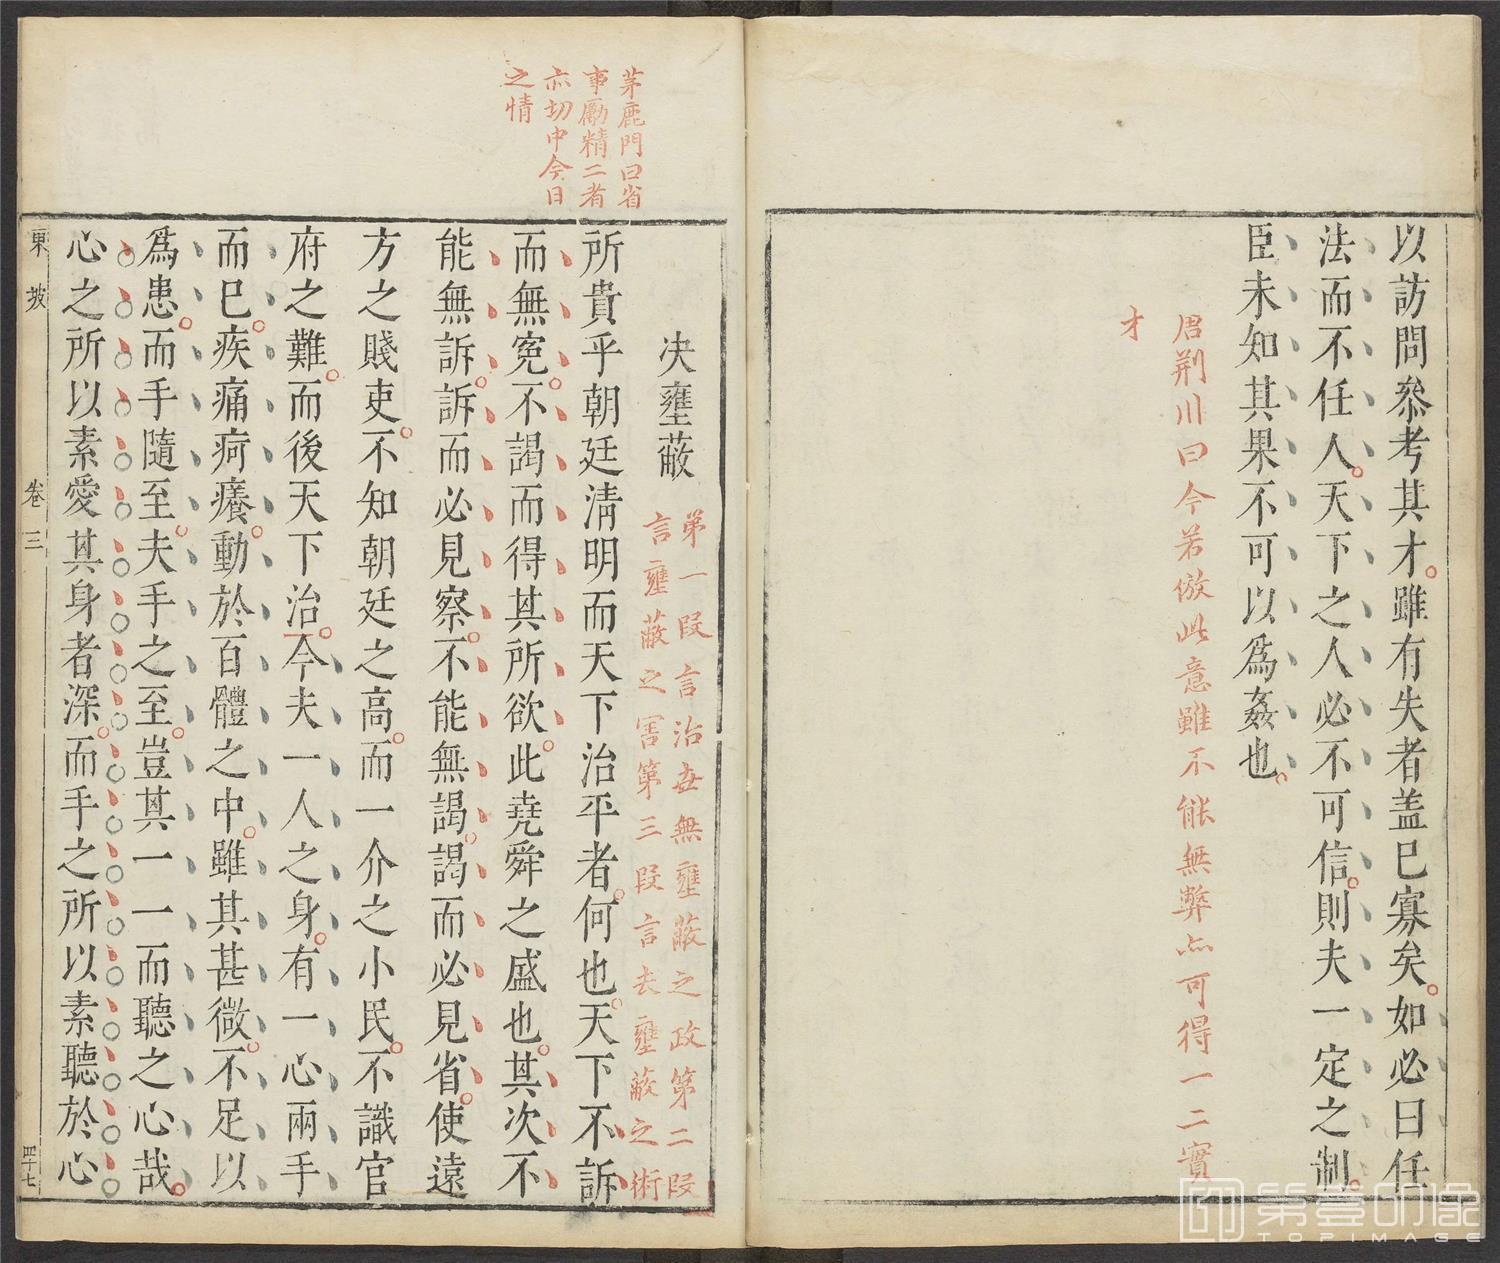 以訪問叅考其才雖有失者盖已寡矣如必曰任
法而不任人天下之人必不可信則夫一定之制
臣未知其果不可以爲姦也
唐荆川曰今若倣此意雖不能無弊亦可得一二實
才
茅鹿門曰省
事勵精二者
亦切中今日
之情
决壅蔽
第一段言治世無壅蔽之政第二段
言壅蔽之害第三段言去壅蔽之術
所貴乎朝廷淸明而天下治平者何也天下不訴
而無寃不謁而得其所欲此堯舜之盛也其次不
能無訴訴而必見察不能無謁謁而必見省使遠
方之賤吏不知朝廷之高而一介之小民不識官
府之難而後天下治今夫一人之身有一心兩手
而已疾痛疴癢動於百體之中雖其甚微不足以
爲患而手隨至夫手之至豈其一一而聽之心哉
心之所以素愛其身者深而手之所以素聽於心
東坡 卷三 四十七
第壹印像
TOPIMAGE